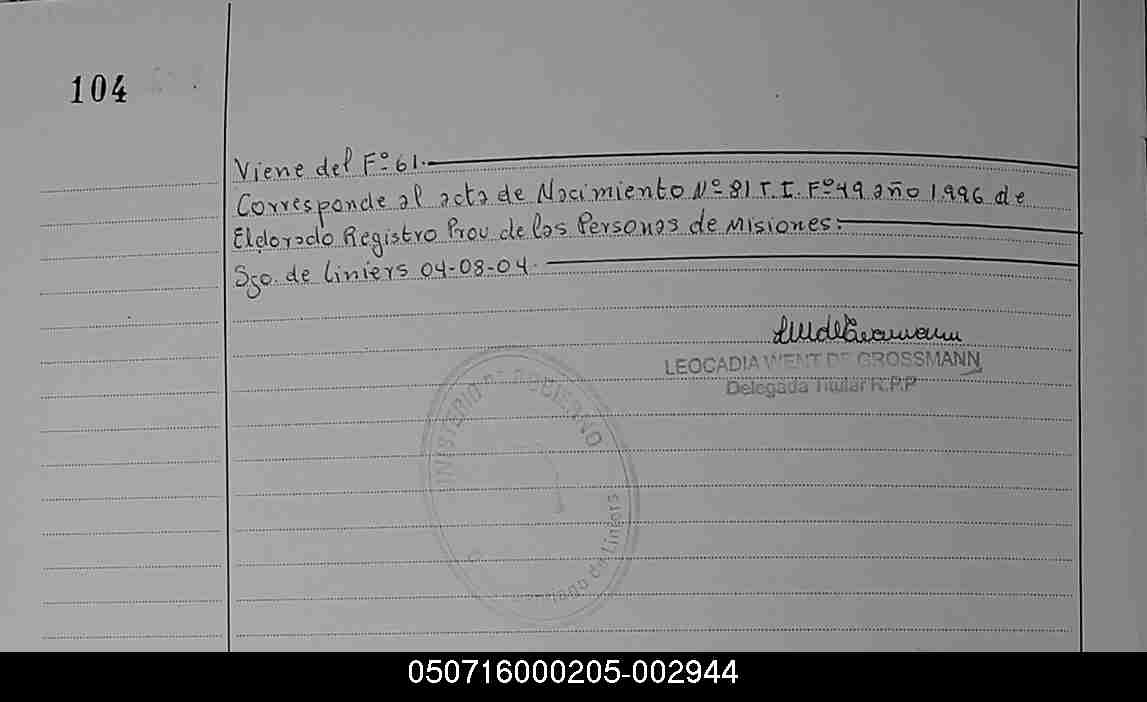 104
Viene del Fº 61.
Corresponde al acta de Nacimiento Nº 81 T.I. Fº 49 año 1.996 de
Eldorado Registro Prov de las Personas de Misiones.
Sgo. de Liniers 04-08-04.
LEOCADIA WENT DE GROSSMANN
Delegada Titular R.P.P
MINISTERIO DE GOBIERNO
Santiago de Liniers
050716000205-002944